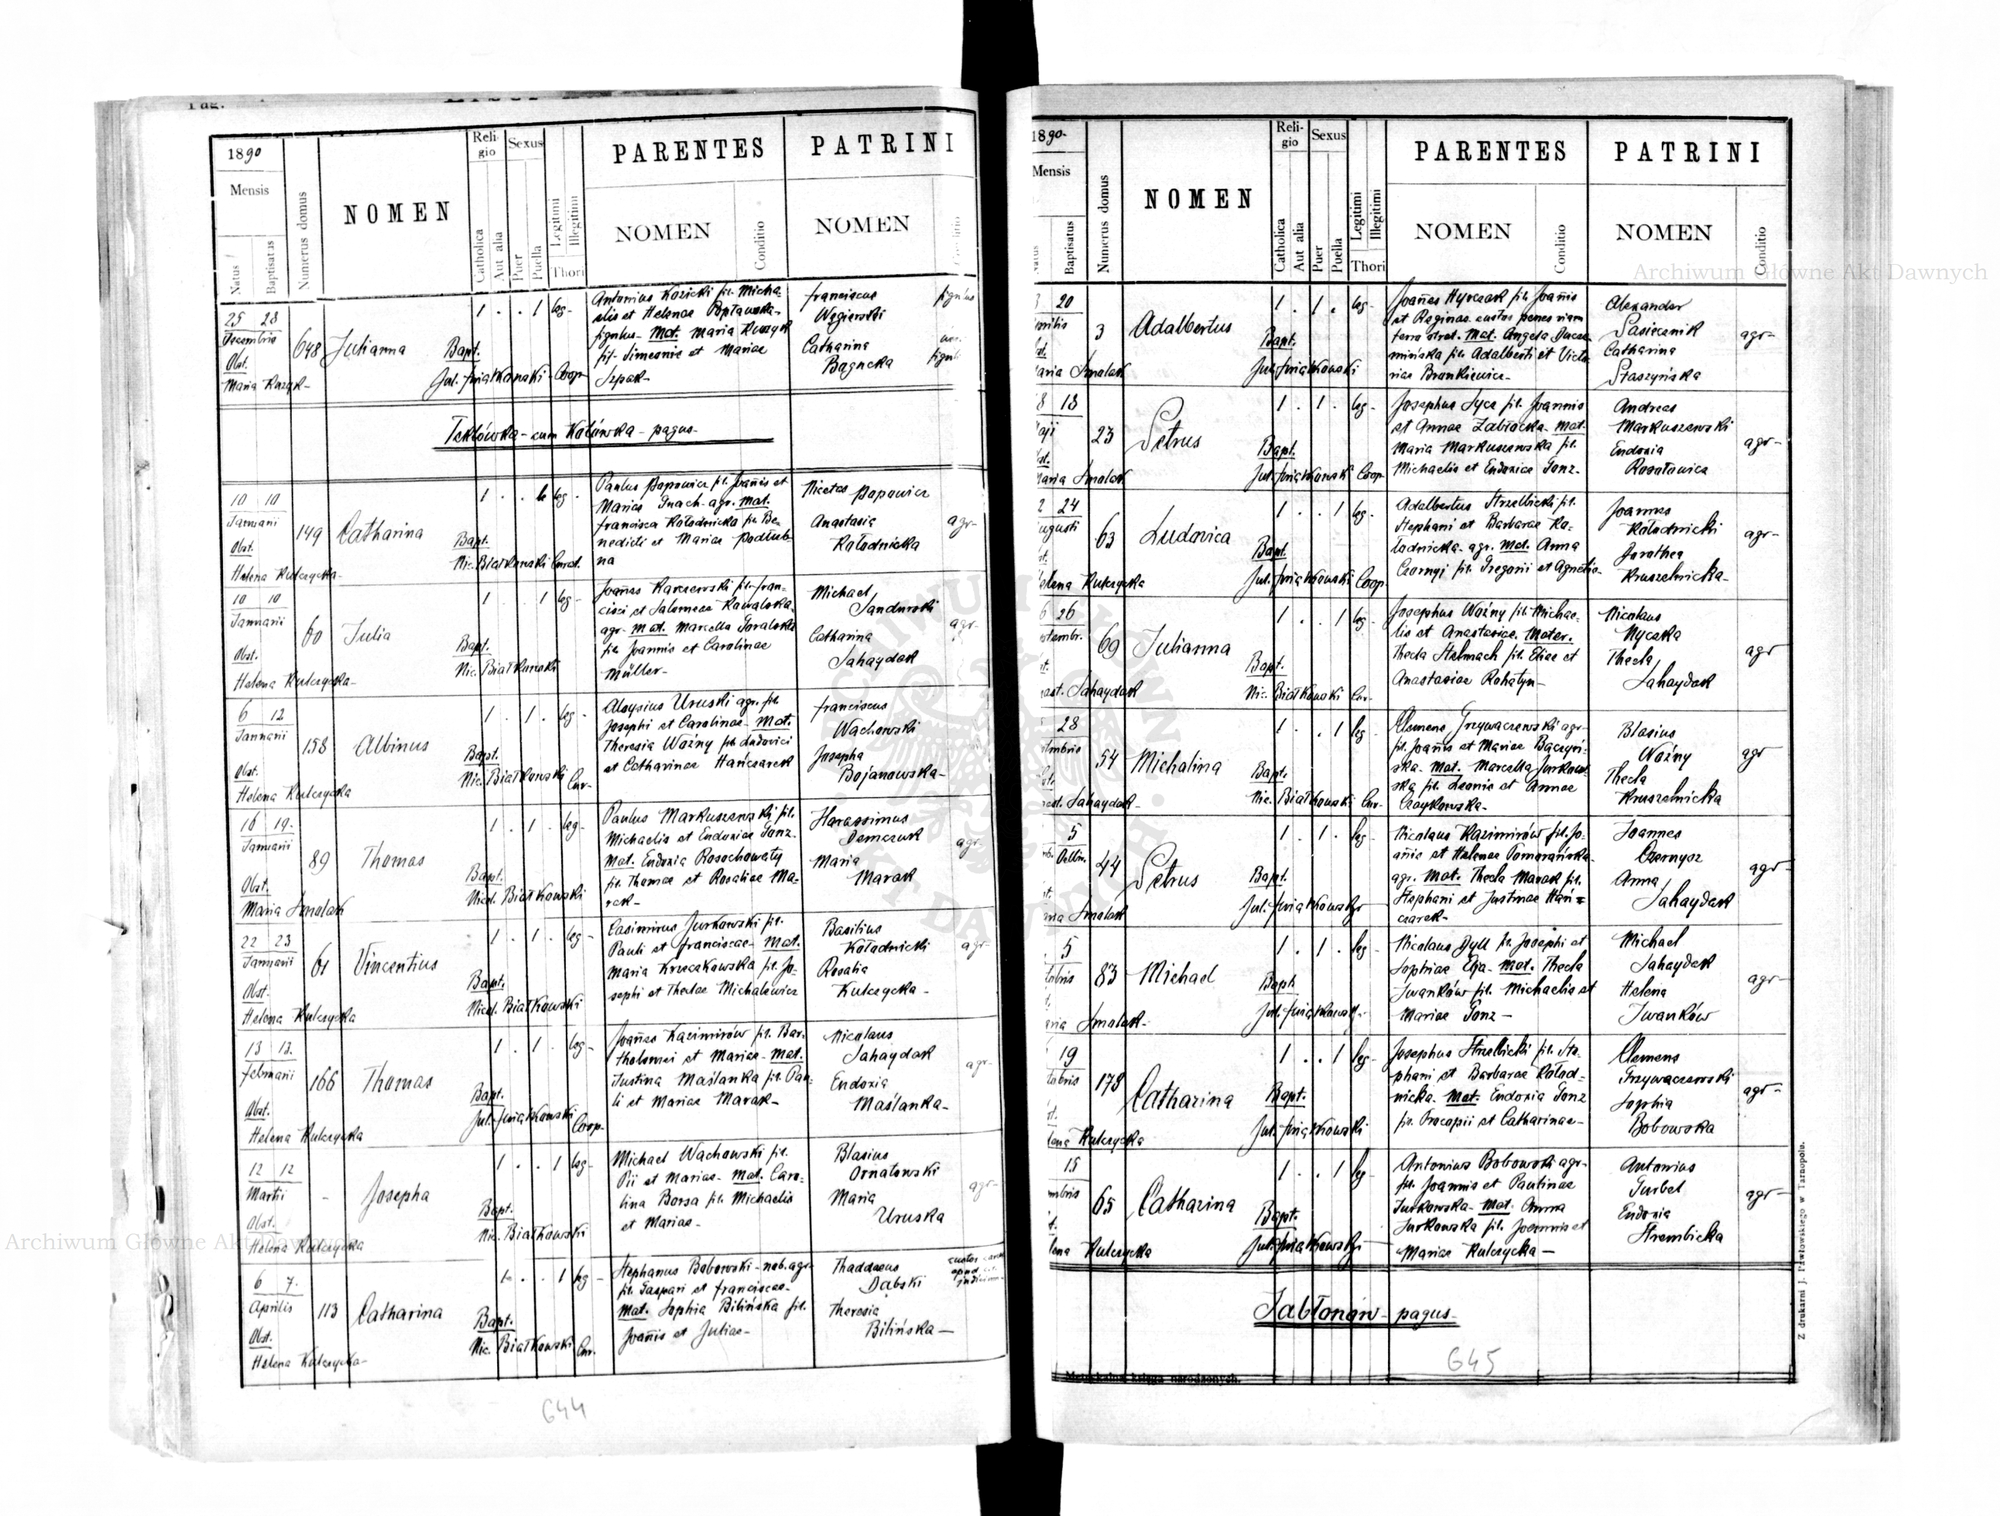 Pag.
1890
Mensis
Natus
Baptisatus
Numerus domus
NOMEN
Religio
Catholica
Aut alia
Sexus
Puer
Puella
Legitimi
Illegitimi
Thori
PARENTES
NOMEN
Conditio
PATRINI
NOMEN
25 28
Decembris
Obst.
Maria Kuzyk-
648
Julianna
Bapt.
Jul. Świątkowski - Coop-
1 . . 1 leg-
Antonius Kozicki fil. Micha-
elis et Helenae Popławska-
figulus- Mat. Maria Kuzyk
fil. Simeonis et Mariae
Szpak-
Franciscus
Węgierski
Catharina
Bagncka
figulus
Teklówka - cum Kotówka - pagus-
10 10
Januarii
Obst.
Helena Kulczycka-
149
Catharina
Bapt.
Nic. Białkowski Curat.
leg-
Paulus Popowicz fil. Joannis et
Mariae Gnach- agr. Mat.
Francisca Kołodnicka fil. Be-
nedicti et Mariae Podłub-
na
Nicetas Popowicz
Anastasia
Kołodnicka
agr-
10 10
Januarii
Obst.
Helena Kulczycka-
60
Julia
Bapt.
Nic. Białkowski
1 . . 1 leg-
Joannes Karczewski fil. Fran-
cisci et Salomeae Kawalska
agr- Mat. Marcella Goralska
fil. Joannis et Carolinae
Müller-
Michael
Sandurski
Catharina
Sahaydak
agr-
6 12
Januarii
Obst.
Helena Kulczycka
158
Albinus
Bapt.
Nic. Białkowski Cur-
1 . 1 . leg-
Aloysius Uruski agr. fil.
Josephi et Carolinae- Mat.
Theresia Woźny fil. Ludovici
et Catharinae Hańczarek
Franciscus
Wachowski
Josepha
Bojanowska-
16 19-
Januarii
Obst.
Maria Smolak
89
Thomas
Bapt.
Nicol. Białkowski
1 . 1 . leg-
Paulus Markuszewski fil.
Michaelis et Eudoxiae Gonz-
Mat. Eudoxia Rosochowaty
fil. Thomae et Rosaliae Ma-
rek-
Harassimus
Demczuk
Maria
Marak
agr-
22 23
Januarii
Obst.
Helena Kulczycka
61
Vincentius
Bapt.
Nicol. Białkowski
1 . 1 . leg-
Casimirus Jurkowski fil.
Pauli et Franciscae- Mat.
Maria Krzeczkowska fil. Jo-
sephi et Theclae Michalewicz
Basilius
Kołodnicki
Rosalia
Kulczycka-
agr-
13 13.
Februarii
Obst.
Helena Kulczycka
166
Thomas
Bapt.
Jul. Świątkowski Coop-
1 . 1 . leg-
Joannes Kazimirów fil. Bar-
tholomei et Mariae- Mat.
Justina Maślanka fil. Pau-
li et Mariae Marak-
Nicolaus
Sahaydak
Eudoxia
Maślanka-
agr-
12 12
Martii
Obst.
Helena Kulczycka
-
Josepha
Bapt.
Nic. Białkowski
1 . . 1 leg-
Michael Wachowski fil.
Pii et Mariae- Mat. Caro-
lina Borsa fil. Michaelis
et Mariae-
Blasius
Ornatowski
Maria
Uruska
agr-
6 7.
Aprilis
Obst.
Helena Kulczycka-
113
Catharina
Bapt.
Nic. Białkowski Cur.
1 . . 1 leg-
Stephanus Bobowski- nob. agr
fil. Gaspari et Franciscae-
Mat. Sophia Bilińska fil.
Joannis et Juliae-
Thaddaeus
Dąbski
Theresia
Bilińska-
644
1890-
Mensis
Natus
Baptisatus
Numerus domus
NOMEN
Religio
Catholica
Aut alia
Sexus
Puer
Puella
Legitimi
Illegitimi
Thori
PARENTES
NOMEN
Conditio
PATRINI
NOMEN
Conditio
20
3
Adalbertus
Bapt.
Jul. Świątkowski
Smolak
1 . 1 . leg-
Joannes Hyrczak fil. Joannis
et Reginae- custos penes viam
ferro strat. Mat. Angela
fil. Adalberti et Victo-
riae Bronkiewicz-
Alexander
Pasiecznik
Catharina
Staszyńska
agr-
18
23
Petrus
Bapt.
Jul. Świątkowski Coop-
Maria Smolak
1 . 1 . leg-
Josephus Syce fil. Joannis
et Annae Zabłocka- Mat.
Maria Markuszewska fil.
Michaelis et Eudoxiae Gonz-
Andreas
Markuszewski
Eudoxia
agr-
24
63
Ludovica
Bapt.
Jul. Świątkowski Coop.
Helena Kulczycka
1 . . 1 leg-
Adalbertus Strzelbicki fil.
Stephani et Barbarae Ko-
łodnicka- agr. Mat. Anna
Czornyj fil. Gregorii et Agnetis-
Joannes
Kołodnicki
Dorothea
Kruszelnicka-
agr-
26
69
Julianna
Bapt.
Nic. Białkowski Cur-
Sahaydak
1 . . 1 leg-
Josephus Woźny fil. Michae-
lis et Anastasiae. Mater.
Thecla Stelmach fil. Eliae et
Anastasiae Rohatyn-
Nicolaus
Thecla
Sahaydak
agr
28
54
Michalina
Bapt.
Nic. Białkowski Cur-
Sahaydak-
1 . . 1 leg-
Clemens Grzywaczewski agr-
fil. Joannis et Mariae Baczyń-
ska- Mat. Marcella Jurkow-
ska fil. Leonis et Annae
Czaykowska-
Blasius
Woźny
Thecla
Kruszelnicka
agr
5
44
Petrus
Bapt.
Jul. Świątkowski
Smolak
1 . 1 . leg-
Nicolaus Kazimirów fil. Jo-
annis et Helenae Pomorańska-
agr. Mat. Thecla Marak fil.
Stephani et Justinae Hań=
czarek-
Joannes
Czernysz
Anna
Sahaydak
agr-
5
83
Michael
Bapt.
Jul. Świątkowski-
Smolak-
1 . 1 . leg-
Nicolaus Dyll fil. Josephi et
Sophiae Mat. Thecla
Iwanków fil. Michaelis et
Mariae Gonz-
Michael
Sahaydak
Helena
Iwanków
agr-
19
178
Catharina
Bapt.
Jul. Świątkowski
Kulczycka
1 . . 1 leg-
Josephus Strzelbicki fil. Ste-
phani et Barbarae Kołod-
nicka- Mat. Eudoxia Gonz
fil. Procopii et Catharinae-
Clemens
Grzywaczewski
Sophia
Bobowska
agr-
15
65
Catharina
Bapt.
Jul. Świątkowski
Kulczycka
1 . . 1 leg-
Antonius Bobowski agr-
fil. Joannis et Paulinae
Jurkowska- Mat. Anna
Jurkowska fil. Joannis et
Mariae Kulczycka-
Antonius
Gurbel
Eudoxia
Strembicka
agr-
Jabłonów - pagus-
645
Metrykalna księga narodzonych.
Z drukarni J. Pawłowskiego w Tarnopolu.
Archiwum Główne Akt Dawnych
Archiwum Główne Akt Dawnych